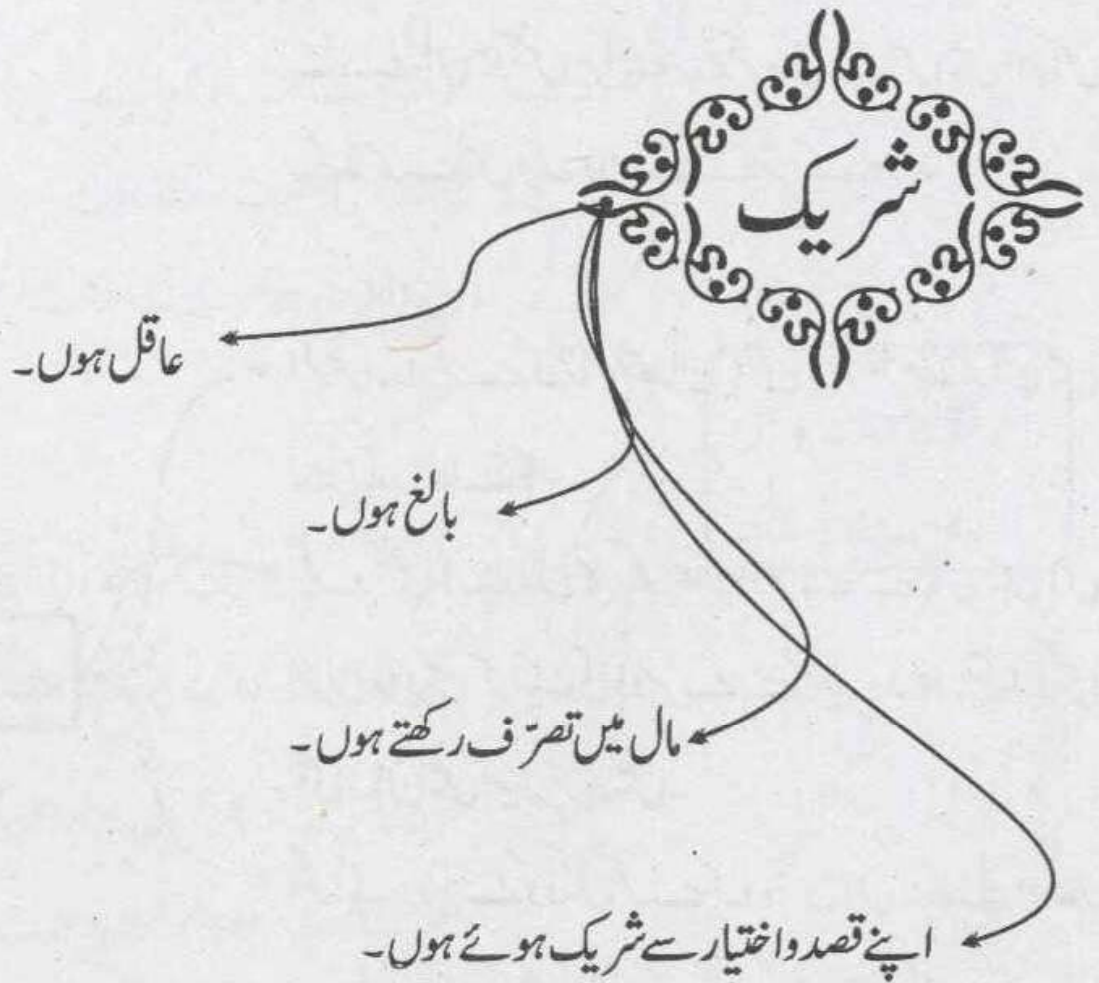 شریک
عاقل ہوں۔
بالغ ہوں۔
مال میں تصرّف رکھتے ہوں۔
اپنے قصد و اختیار سے شریک ہوئے ہوں۔